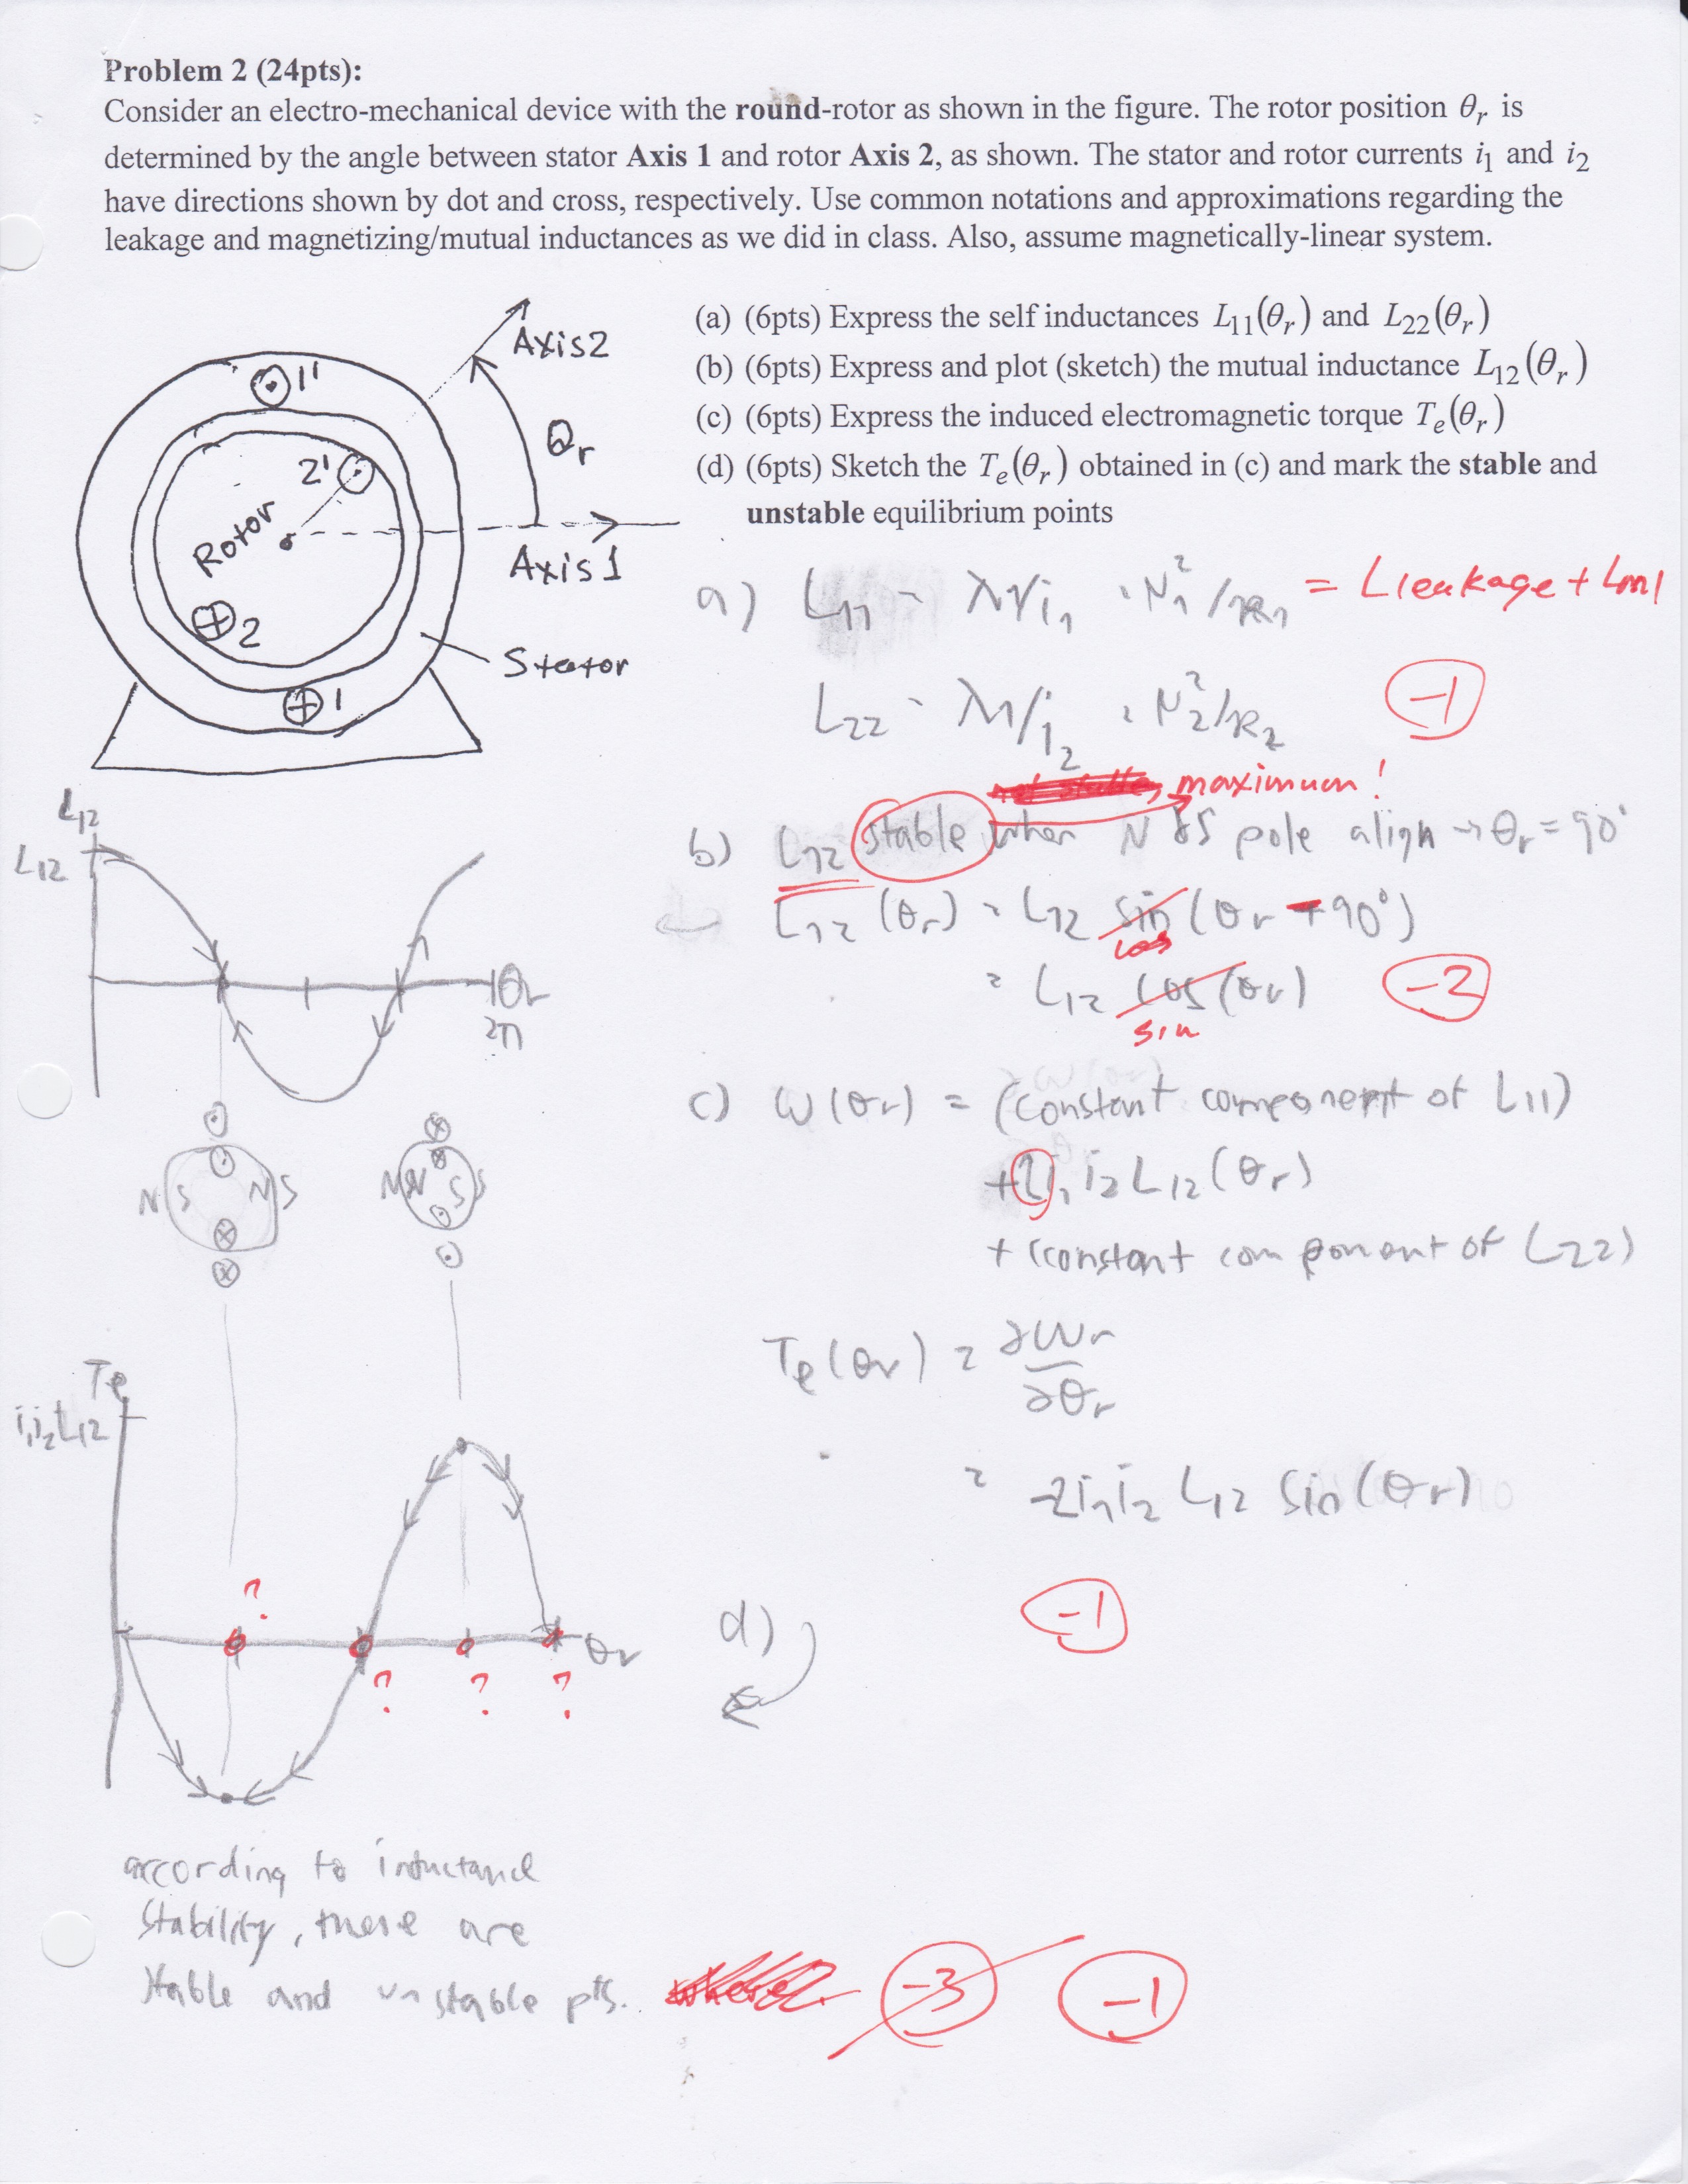 Problem 2 (24pts):
Consider an electro-mechanical device with the round-rotor as shown in the figure. The rotor position θr is
determined by the angle between stator Axis 1 and rotor Axis 2, as shown. The stator and rotor currents i1 and i2
have directions shown by dot and cross, respectively. Use common notations and approximations regarding the
leakage and magnetizing/mutual inductances as we did in class. Also, assume magnetically-linear system.
(a) (6pts) Express the self inductances L11(θr) and L22(θr)
(b) (6pts) Express and plot (sketch) the mutual inductance L12(θr)
(c) (6pts) Express the induced electromagnetic torque Te(θr)
(d) (6pts) Sketch the Te(θr) obtained in (c) and mark the stable and
unstable equilibrium points
Axis2
1'
θr
2'
Rotor
Axis1
2
Stator
1
a) L11 = λ1/i1 = N1²/R1 = Lleakage + Lm1
L22 = λ1/i2 = N2²/R2
-1
maximum!
b) L12 stable when N & S pole align → θr = 90°
L12 (θr) = L12 sin (θr - 90°)
cos
= L12 cos (θr)
sin
-2
L12
L12
θr
2π
c) W(θr) = (constant component of L11)
+ 2i1 i2 L12 (θr)
+ (constant component of L22)
N S N S
N N S S
Te(θr) = ∂Wr
∂θr
= -2i1i2 L12 sin(θr)
-1
Te
i1i2L12
? ? ? ?
θr
d)
according to inductance
stability, these are
stable and unstable pts.
where
-3
-1